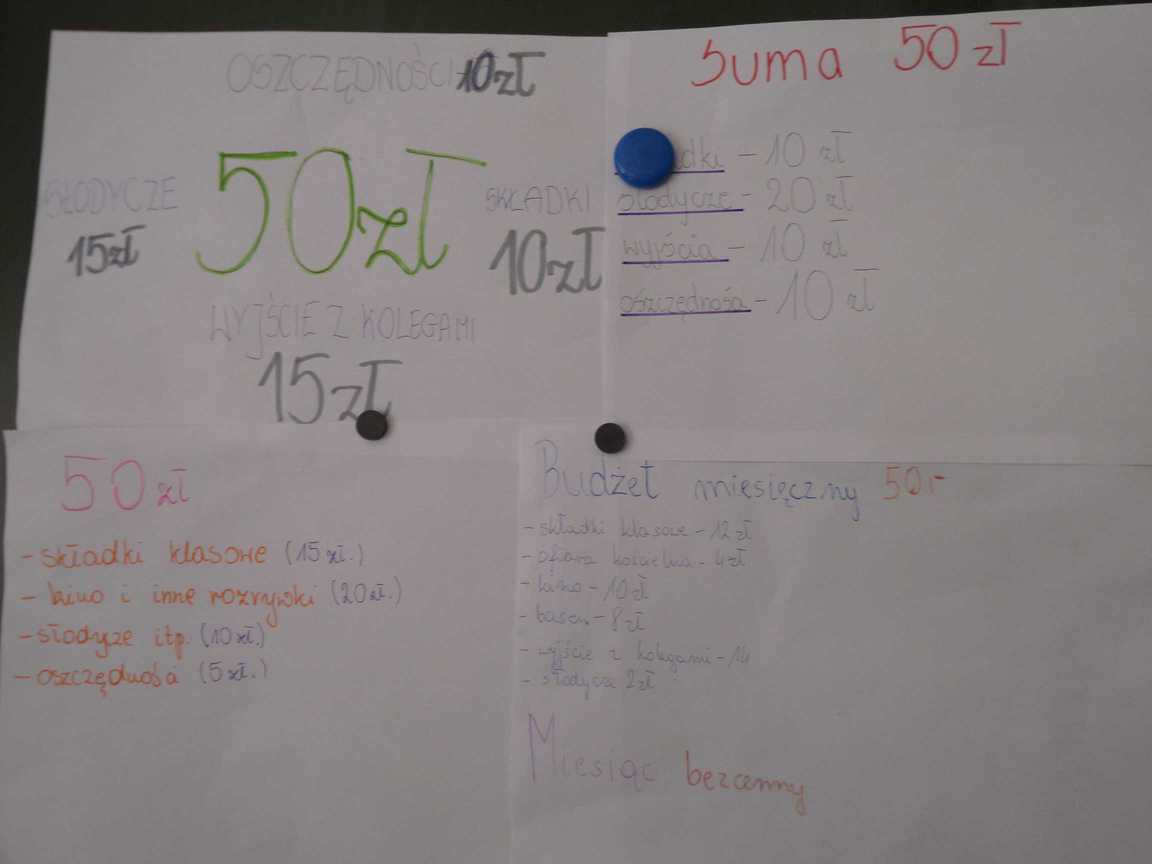 OSZCZĘDNOŚCI 10zł
SŁODYCZE
15zł
50zł
SKŁADKI
10zł
WYJŚCIE Z KOLEGAMI
15zł
Suma 50 zł
dki - 10 zł
słodycze - 20 zł
wyjścia - 10 zł
oszczędnośa - 10 zł
50 zł
- składki klasowe (15 zł.)
- kino i inne rozrywki (20zł.)
- słodyze itp. (10 zł.)
- oszczędnośa (5 zł.)
Budżet miesięczny 50,-
- składki klasowe - 12 zł
- ofiara kościelna - 4 zł
- kino - 10 zł
- basen - 8 zł
- wyjście z kolegami - 14
- słodycze 2 zł
Miesiąc bezcenny